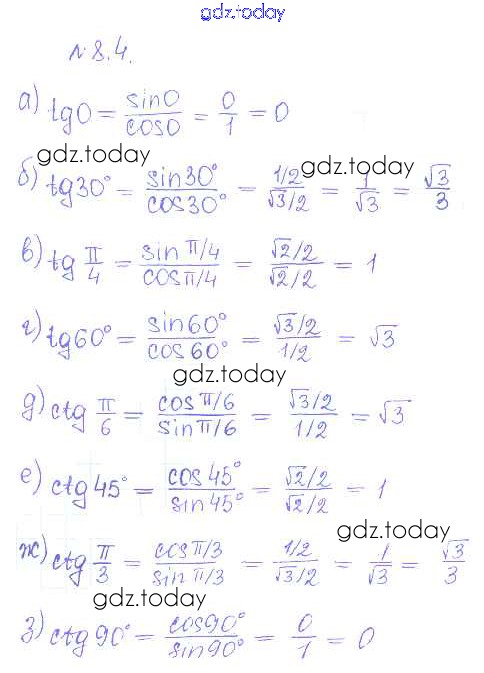 gdz.today
№8.4.
а) tg0 = sin0/cos0 = 0/1 = 0
gdz.today
б) tg30° = sin30°/cos30° = (1/2)/(√3/2) = 1/√3 = √3/3
gdz.today
в) tg π/4 = (sin π/4)/(cos π/4) = (√2/2)/(√2/2) = 1
г) tg60° = sin60°/cos60° = (√3/2)/(1/2) = √3
gdz.today
д) ctg π/6 = (cos π/6)/(sin π/6) = (√3/2)/(1/2) = √3
е) ctg45° = cos45°/sin45° = (√2/2)/(√2/2) = 1
gdz.today
ж) ctg π/3 = (cos π/3)/(sin π/3) = (1/2)/(√3/2) = 1/√3 = √3/3
gdz.today
з) ctg90° = cos90°/sin90° = 0/1 = 0